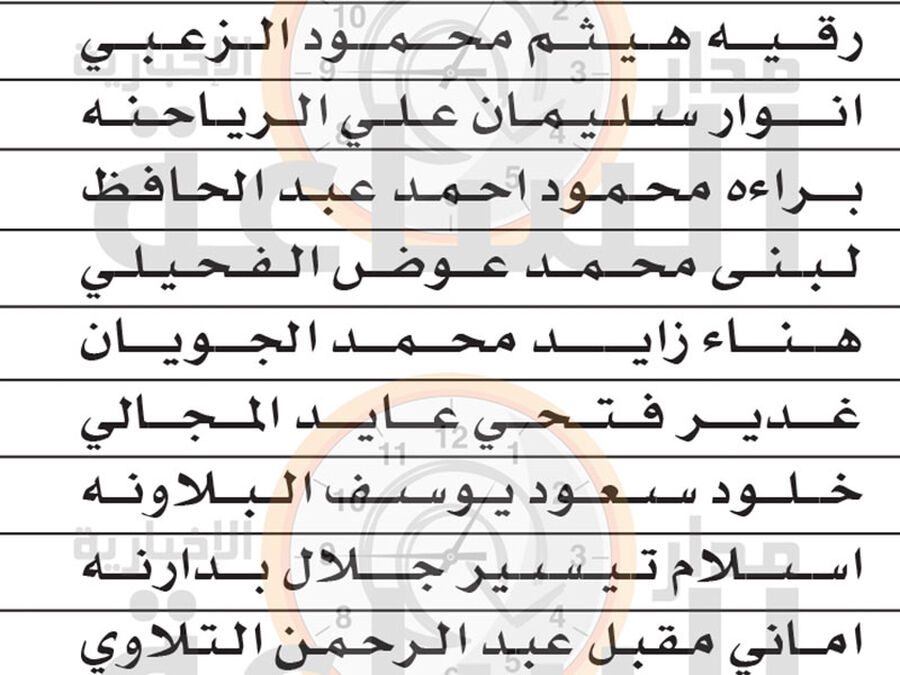 رقيه هيثم محمود الزعبي
انوار سليمان علي الرياحنه
براءه محمود احمد عبد الحافظ
لبنى محمد عوض الفحيلي
هناء زايد محمد الجويان
غدير فتحي عايد المجالي
خلود سعود يوسف البلاونه
اسلام تيسير جلال بدارنه
اماني مقبل عبد الرحمن التلاوي